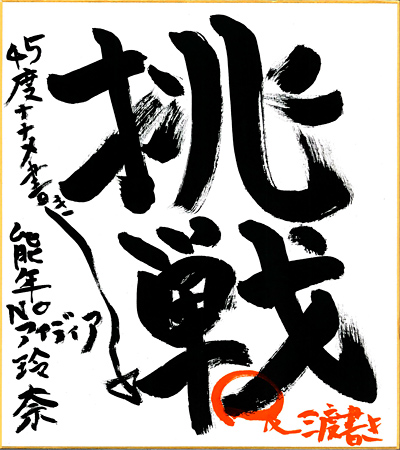 挑戦
45度ナナメ書き
能年NO
アイディア
玲奈
三度書き